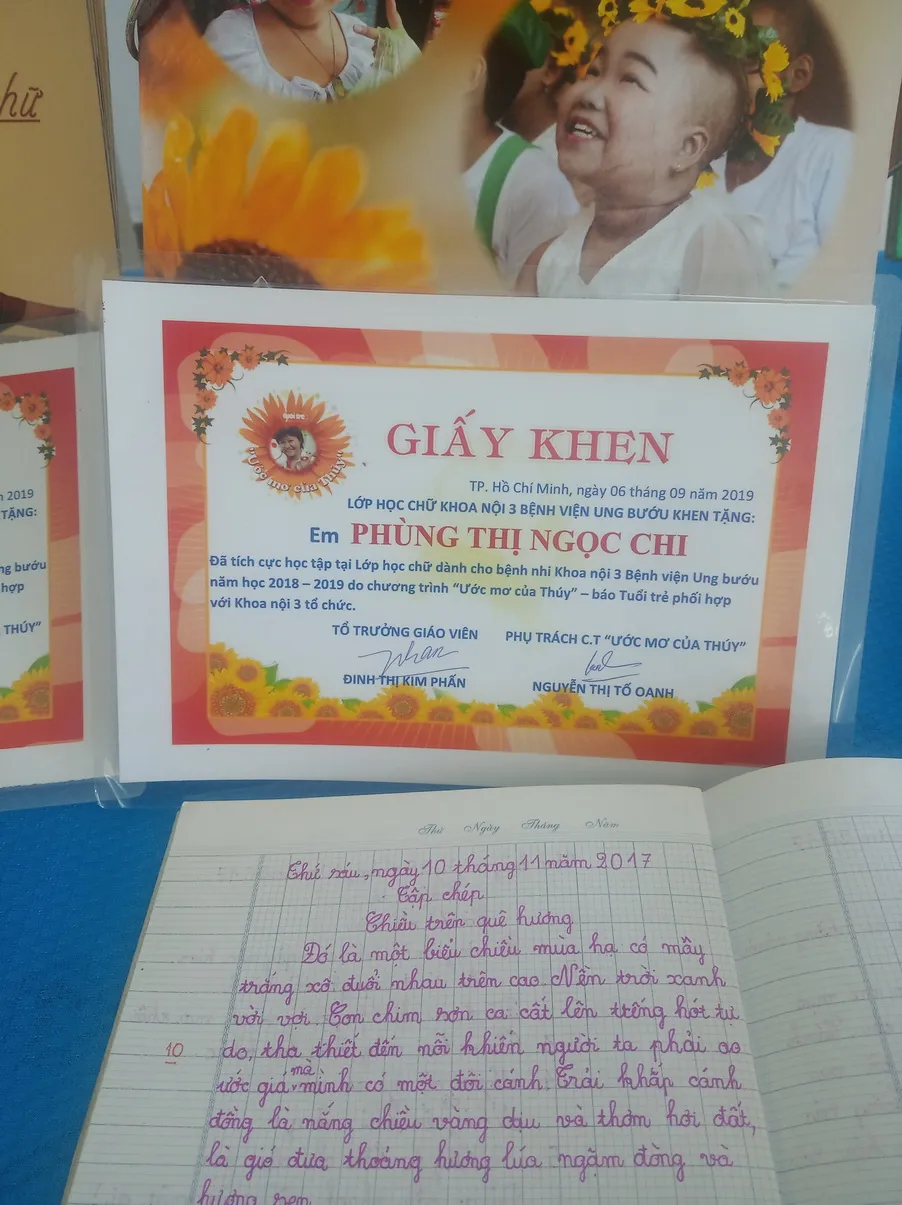 hữ
GIẤY KHEN
Tuổi trẻ
"Ước mơ của Thúy"
TP. Hồ Chí Minh, ngày 06 tháng 09 năm 2019
LỚP HỌC CHỮ KHOA NỘI 3 BỆNH VIỆN UNG BƯỚU KHEN TẶNG:
Em PHÙNG THỊ NGỌC CHI
Đã tích cực học tập tại Lớp học chữ dành cho bệnh nhi Khoa nội 3 Bệnh viện Ung bướu
năm học 2018 – 2019 do chương trình “Ước mơ của Thúy” – báo Tuổi trẻ phối hợp
với Khoa nội 3 tổ chức.
TỔ TRƯỞNG GIÁO VIÊN
PHỤ TRÁCH C.T “ƯỚC MƠ CỦA THÚY”
ĐINH THỊ KIM PHẤN
NGUYỄN THỊ TỐ OANH
2019
TẶNG:
ng bướu
hợp
THÚY”
Thứ Ngày Tháng Năm
Thứ sáu, ngày 10 tháng 11 năm 2017
Tập chép
Chiều trên quê hương
Đó là một biểu chiều mùa hạ có mây
trắng xô đuổi nhau trên cao. Nền trời xanh
vời vợi. Con chim sơn ca cất lên tiếng hót tự
10
do, tha thiết đến nỗi khiến người ta phải ao
ước giá mà mình có một đôi cánh. Trải khắp cánh
đồng là nắng chiều vàng dịu và thơm hơi đất,
là gió đưa thoảng hương lúa ngậm đòng và
hương sen